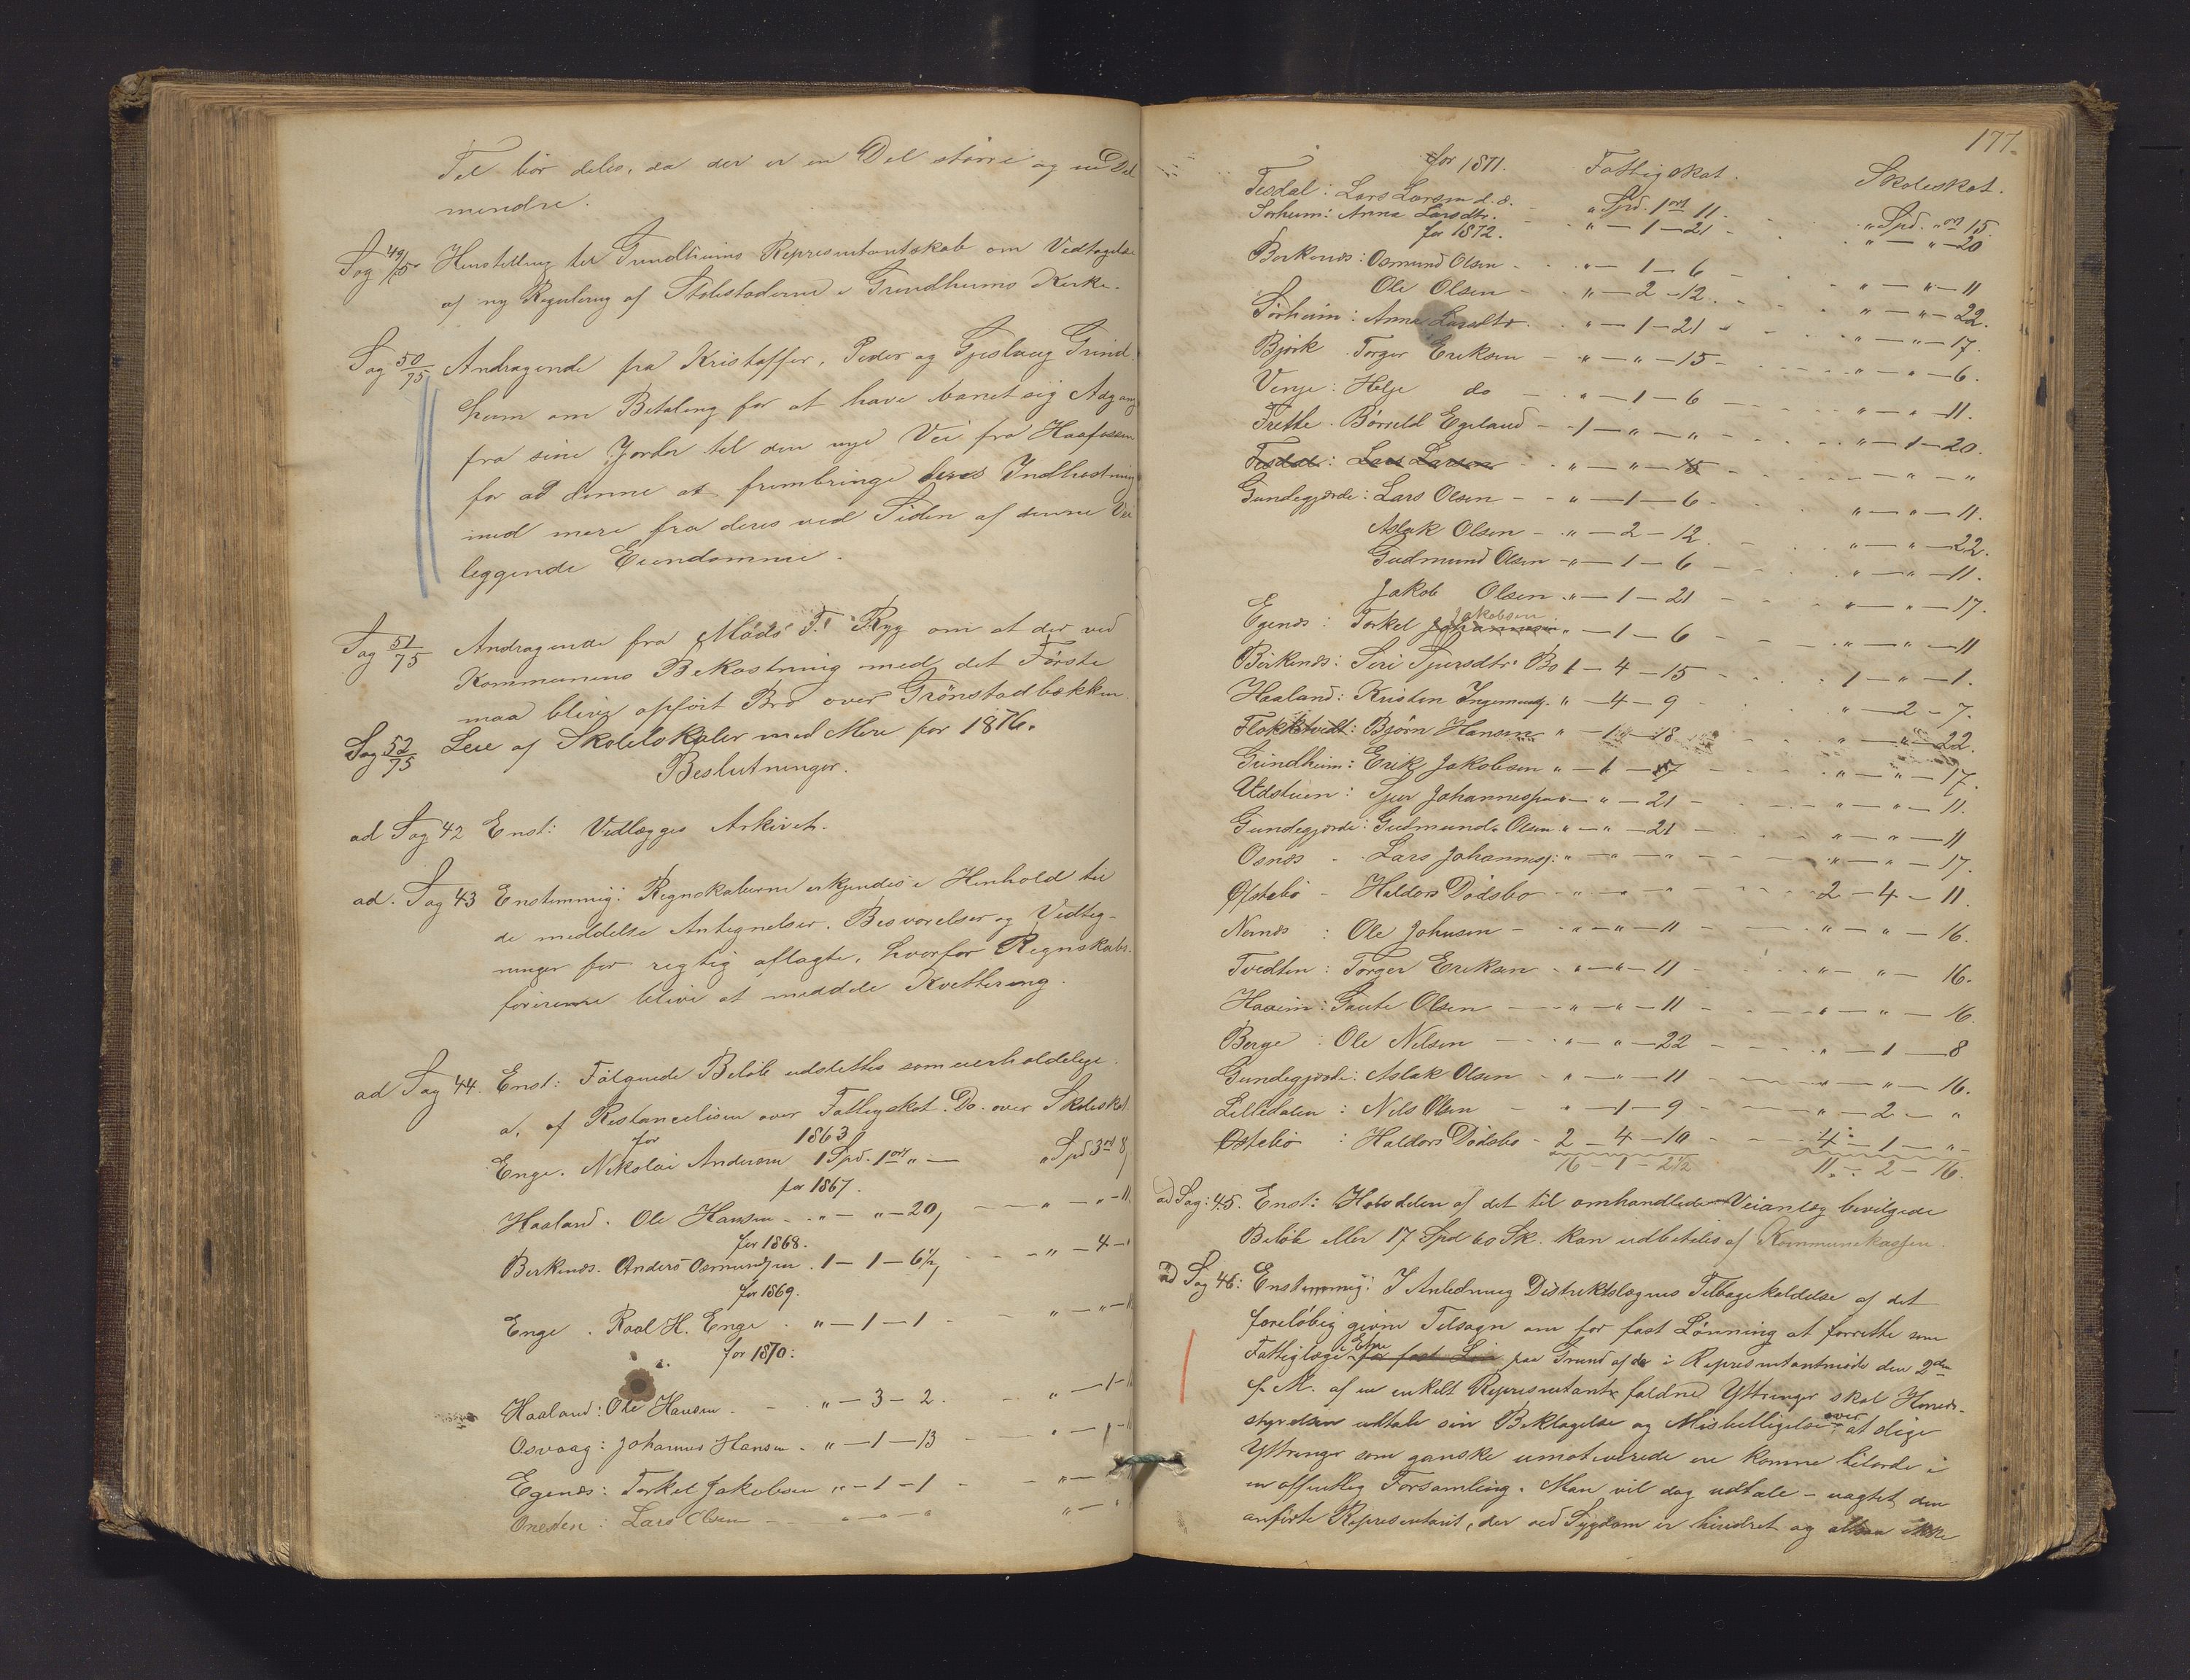 Tel bör deles, da der er en Del större og en Del
mindre.
Sag 49/75 Henstilling til Grindheims Representantskab om Vedtagelse
af ny Regulering af Stolestaderne i Grindheims Kirke.
Sag 50/75 Andragende fra Kristoffer, Peder og Gjeslaug Grind
heim om Betaling for at have banet sig Adgang
fra sine Jorder til den nye Vei fra Haafossen
for ad denne at frembringe deres Indhøstning
med mere fra deres ved Siden af denne Vei
liggende Eiendomme.
Sag 51/75 Andragende fra Mads T. Ryg om at der ved
Kommunens Bekostning med det Første
maa blive opført Bro over Grönstadbækken.
Sag 52/75 Leie af Skolelokaler med Mere for 1876.
Beslutninger.
ad Sag 42 Enst: Vedlægges Arkivet.
ad. Sag 43 Enstemmig: Regnskaberne erkjendes i Henhold til
de meddelte Antegnelser, Besvarelser og Vedteg-
ninger for rigtig aflagte, hvorfor Regnskabs-
förerne blive at meddele Kvittering.
ad Sag 44. Enst: Følgende Beløb udslettes som uerholdelige.
a, af Restancelisen over Fattigskat. Do. over Skoleskat
for 1863
Enge. Nikolai Andersen 1 Spd. 1 ort „ — „ Spd 3 ort 8,
for 1867.
Haaland. Ole Hansen - „ — „ — 20, — „ — „ — 11.
for 1868.
Berkenes. Anders Osmundsen . 1 — 1 — 6½, - - „ — 4 —
for 1869.
Enge . Roal H. Enge . „ — 1 — 1 - - „ — „ — 11
for 1870:
Haaland: Ole Hansen . - „ — 3 — 2. - „ — 1 —
Osvaag: Johannes Hansen . „ — 1 — 13 - „ — 1 —
Egenes: Torkel Jakobsen „ — 1 — 1 - „ —
Lars Olsen — „ — „ — „ „ —
177.
for 1871. Fattigskat. Skoleskat.
Tesdal: Lars Larsen d. æ. „ Spd. 1 ort 11. „ Spd. „ ort 15.
Sørheim: Anna Larsdtr. „ — 1 — 21 „ — „ — 20
for 1872.
Berkenes: Osmund Olsen - „ — 1 — 6 - „ — „ — 11
Ole Olsen - „ — 2 — 12. - „ — „ — 22.
Sörheim: Anna Larsdtr. „ — 1 — 21 - „ — „ — 17.
Bjørk . Torger Eriksen - „ — „ — 15 - „ — „ — 6.
Venje: Helje do - „ — 1 — 6 - „ — „ — 11.
Trette . Børreld Egeland - 1 — „ — „ - „ — 1 — 20.
Tesdal: Lars Larsen - „ — „ — 15 - „ — „
Gundegjærde: Lars Olsen - „ — 1 — 6 - „ — „ — 11.
Aslak Olsen - „ — 2 — 12. „ — „ — 22.
Gudmund Olsen „ — 1 — 6 - „ — „ — 11.
Jakob Olsen „ — 1 — 21 - „ — „ — 17.
Egenes: Torkel Johannesen Jakobsen „ — 1 — 6 - „ — „ — 11
Birkenes: Siri Sjursdtr. Bo 1 — 4 — 15 - 1 — „ — 1.
Haaland: Kristen Ingemunds. „ — 4 — 9 - „ — 2 — 7.
Flokketvedt: Bjørn Hansen „ — 1 — 18 - „ — „ — 22.
Grindheim: Erik Jakobsen „ — 1 — 17 - „ — „ — 17.
Udstuen: Sjur Johannesen „ — „ — 21 - „ — „ — 11.
Gundegjærde: Gudmund Olsen „ — „ — 21 - „ — „ — 11
Osnes - Lars Johannesen: „ — „ — „ - „ — „ — 17.
Øfstebö - Haldors Dødsbo - „ — „ — „ - 2 — 4 — 11.
Nemes : Ole Johnsen - „ — „ — 11 - „ — „ — 16.
Tvedten: Torger Eriksen - „ — „ — 11 - „ — „ — 16.
Haaeim: Gaute Olsen - „ — „ — 11 - „ — „ — 16.
Berge : Ole Nilsen - „ — „ — 22 - „ — 1 — 8
Gundegjærde: Aslak Olsen - „ — „ — 11 - „ — „ — 16.
Lilledalen: Nils Olsen - „ — 1 — 9 - „ — 2 — „
Østebö : Haldors Dødsbo - 2 — 4 — 10 - 4 — 1 — „
16 — 1 — 2½ 11. — 2 — 16.
ad Sag: 45. Enst: Halvdelen af det til omhandlede Veianlæg bevilgede
Beløb eller 17 Spd 60 Sk. kan udbetales af Kommunekassen.
ad Sag 46: Enstemmig: I Anledning Distriktslægens Tilbagekaldelse af det
foreløbig givne Tilsagn om for fast Lønning at forrette som
Fattiglæge i Etne for fast Løn paa Grund af de i Representantmøde den 2den
f. M. af en enkelt Representant faldne Yttringer skal Herreds-
styrelsen udtale sin Beklagelse og Misbilligelse over at slige
Yttringer som ganske umotiverede ere komne tilorde i
en offentlig Forsamling. Man vil dog udtale - uagtet den
anførte Representant, der ved Sygdom er hindret og altsaa ikke